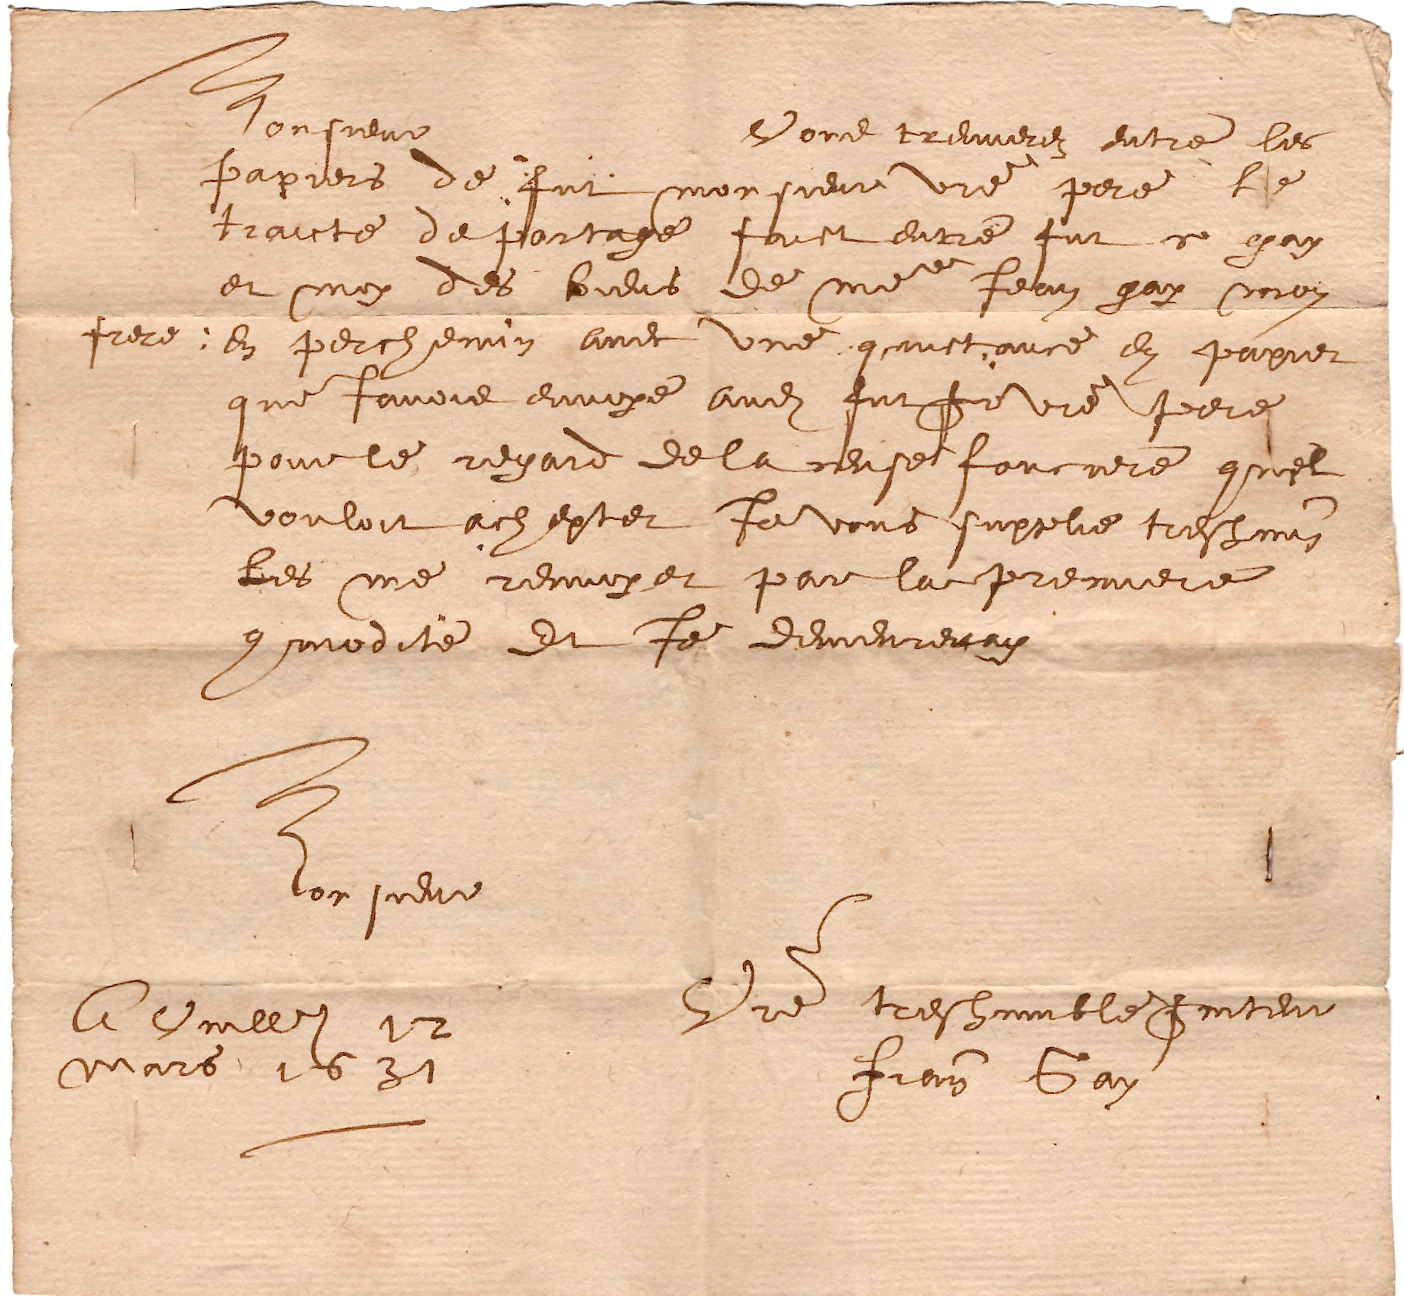 Monsieur Vous treuverez entre les
papiers de fut monsieur vre pere le
traicte de partage faict entre fut n gay
et moy des biens de me Jean gay mon
frere : en perchemin avec une quictance en papier
que Javois envoye audi fut Sr vre pere
pour le regard de la rense fonciere quel
vouloit achepter Je vous supplie treshum
les me renvoyer par la premiere
comodite Et Je demeureray
Monsieur
A Vuilley 12
mars 1631
Vre treshumble Serviteur
Fran Gay